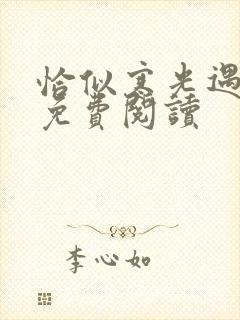 恰似寒光遇
免費閱讀
李心如